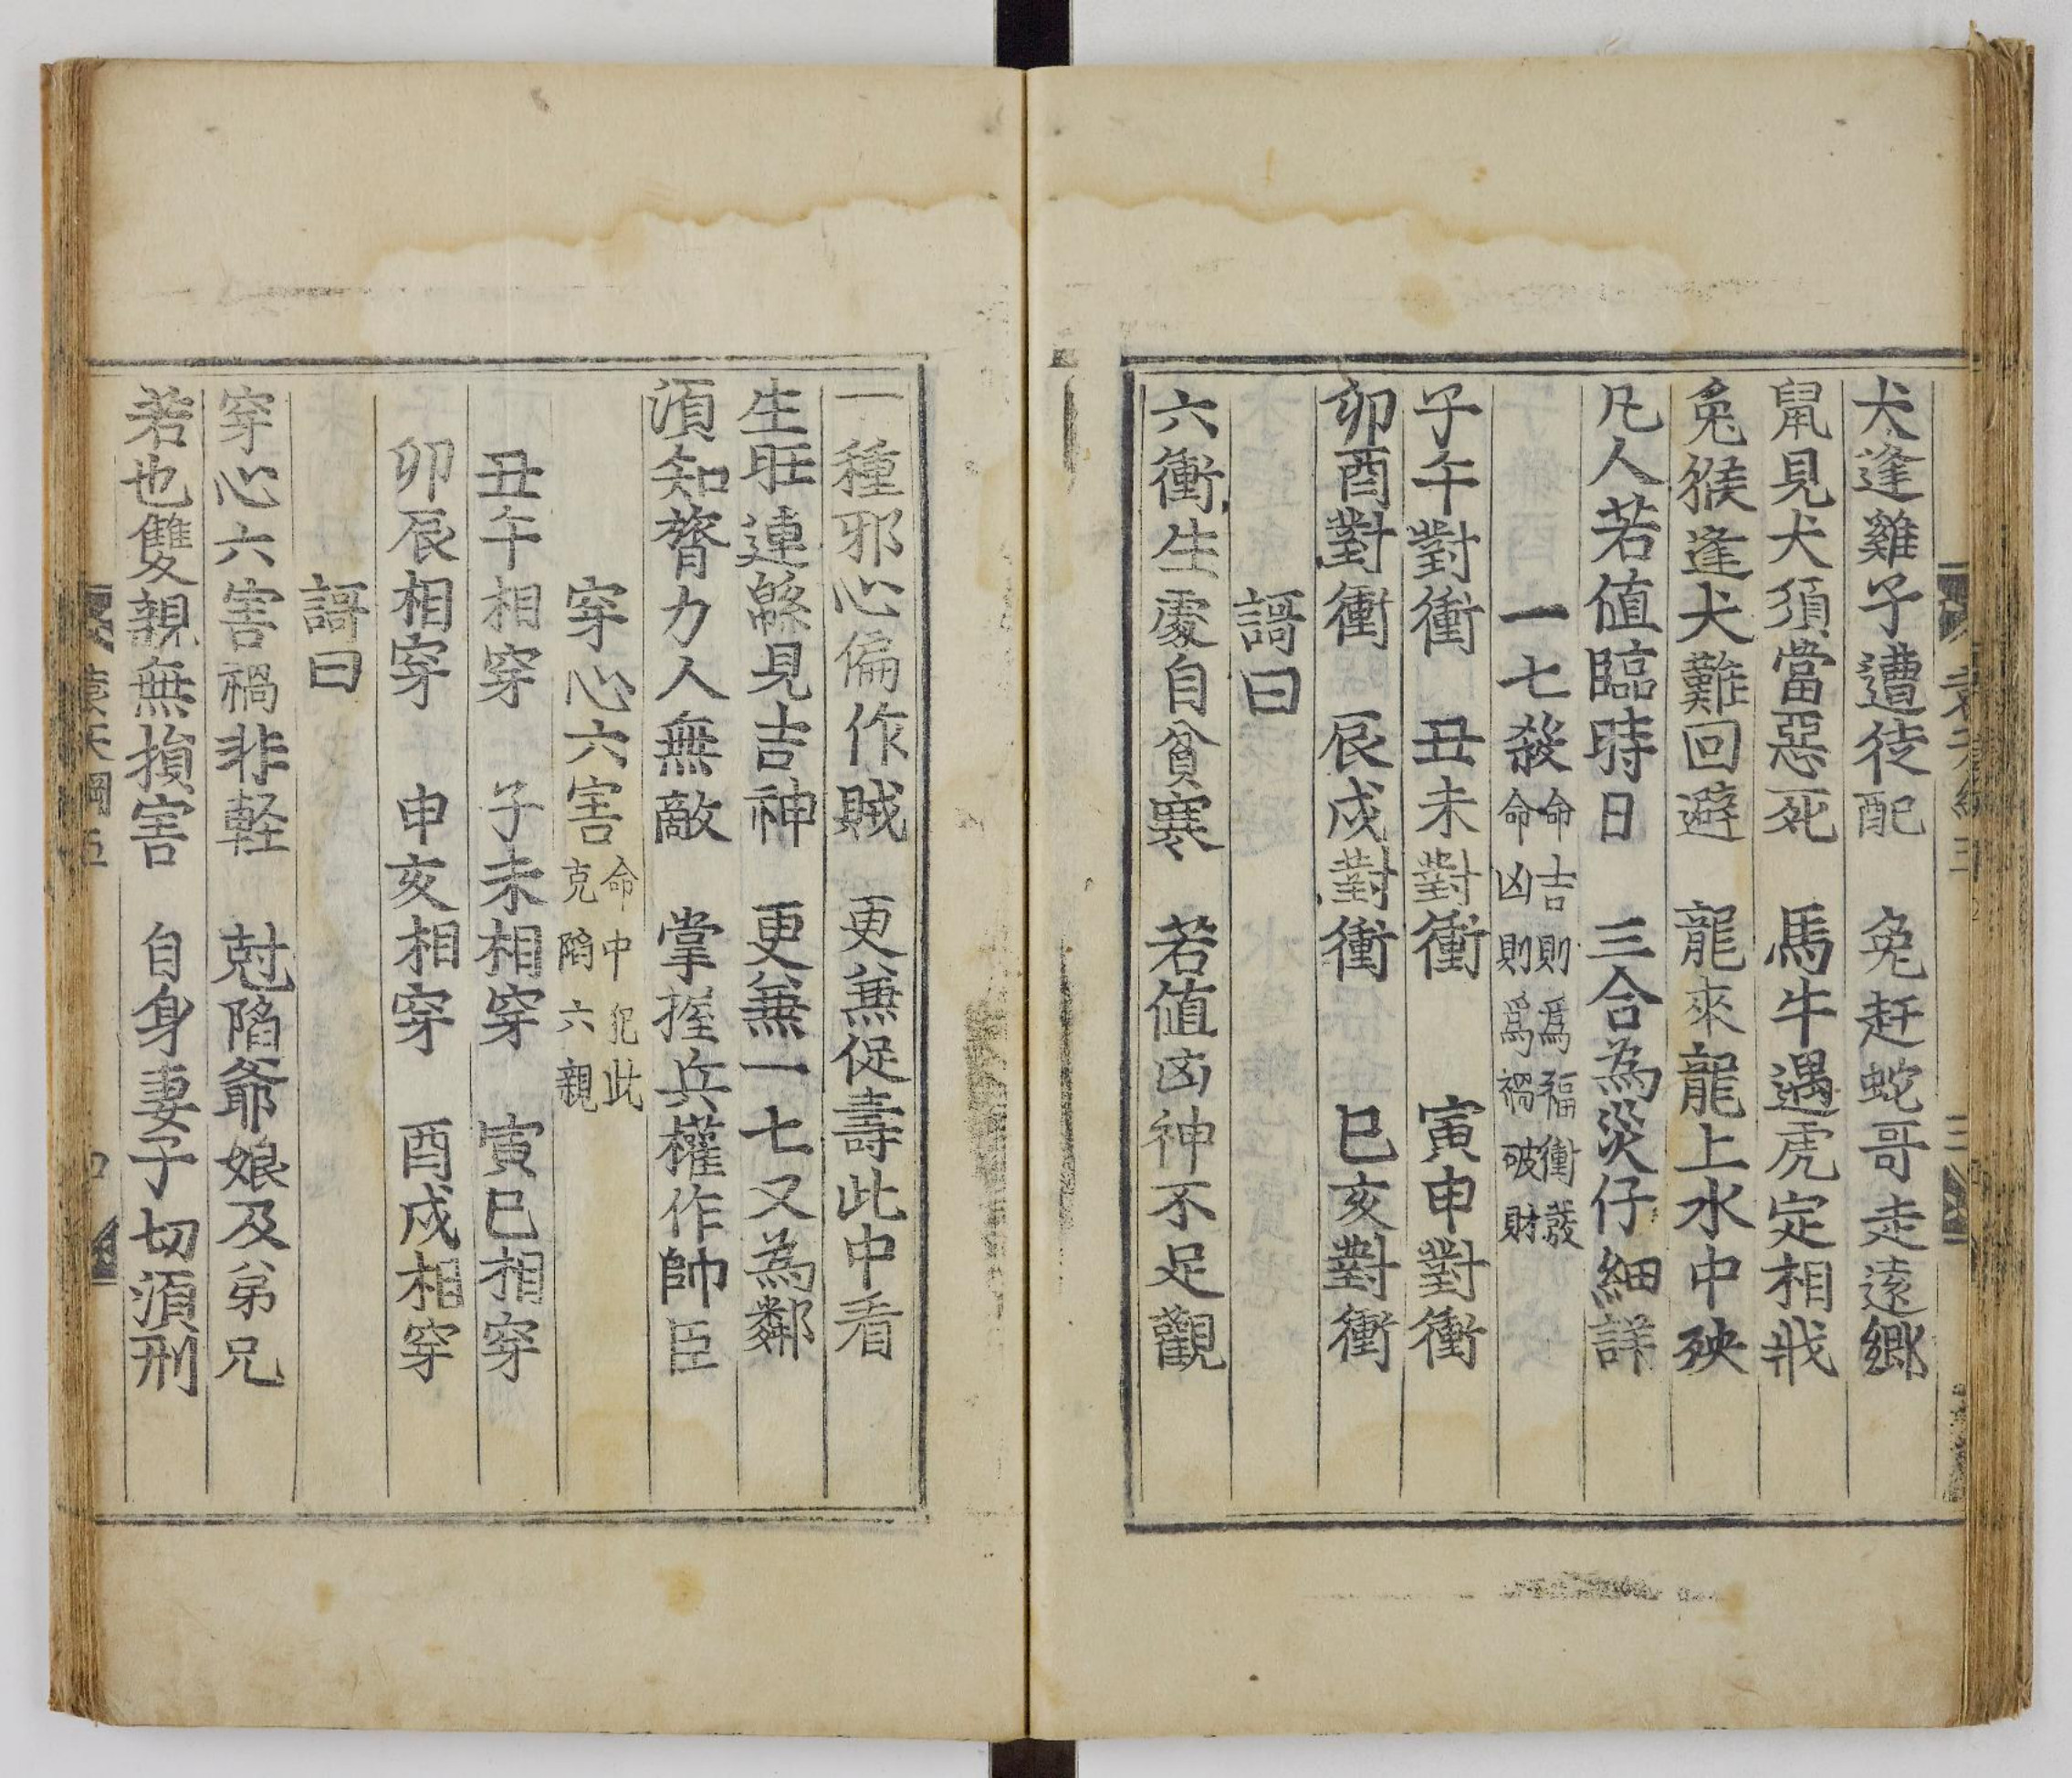 犬逢雞子遭徒配　兔赶蛇哥走遠鄉
鼠見犬須當惡死　馬牛遇虎定相戕
兔猴逢犬難回避　龍來龍上水中殃
凡人若值臨時日　三合為災仔細詳
一七殺命吉則爲福衝發命凶則爲禍破財
子午對衝　丑未對衝　寅申對衝
卯酉對衝　辰戌對衝　巳亥對衝
謌曰
六衝生處自貧寒　若值凶神不足觀
一種邪心偏作賊　更蕪促壽此中看
生旺連緜見吉神　更蕪一七又為鄰
湏知膂力人無敵　掌握兵權作帥臣
穿心六害命中犯此克陷六親
丑午相穿　子未相穿　寅巳相穿
卯辰相穿　申亥相穿　酉戌相穿
謌曰
穿心六害禍非軽　尅陷爺娘及弟兄
若也雙親無損害　自身妻子切湏刑